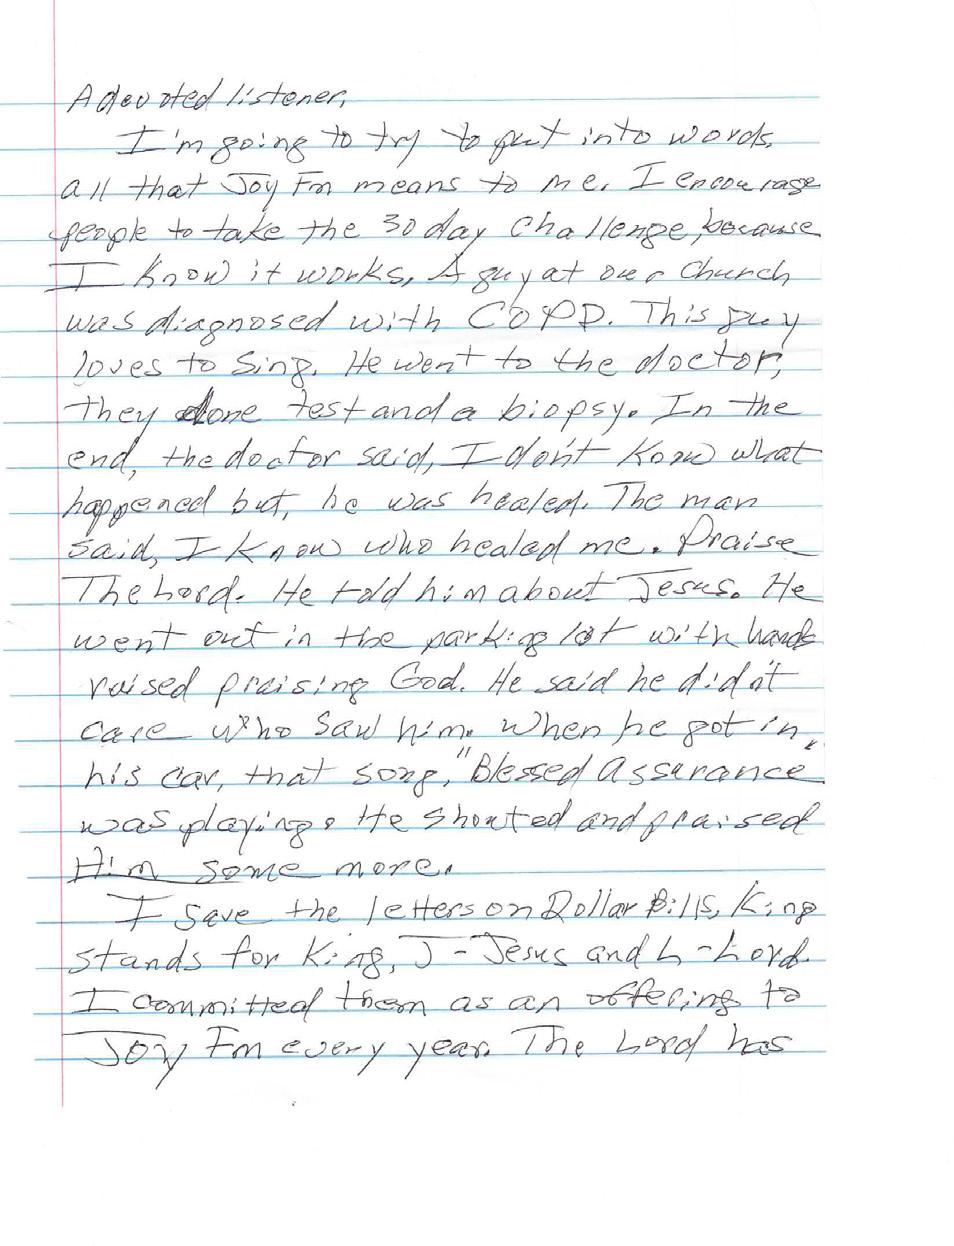 A devoted listener,
I'm going to try to put into words,
all that Joy Fm means to me. I encourage
people to take the 30 day Challenge, because
I know it works. A guy at our Church
was diagnosed with COPD. This guy
loves to Sing. He went to the doctor,
they done test and a biopsy. In the
end, the doctor said, I don't Konw what
happened but, he was healed. The man
said, I know who healed me. Praise
The Lord. He told him about Jesus. He
went out in the parking lot with hands
raised praising God. He said he didn't
care who saw him. When he got in
his car, that song, "Blessed Assurance"
was playing. He shouted and praised
Him some more.
I save the letters on Dollar Bills, King
stands for King, J - Jesus and L - Lord.
I committed them as an offering to
Joy Fm every year. The Lord has